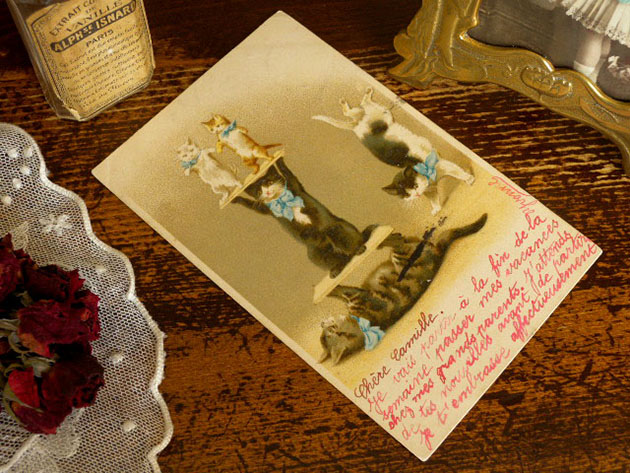 EXTRAIT CONC
VANILLE
ALPH. ISNARD
PARIS
Chère Camille.
je vais partir à la fin de la
semaine passer mes vacances
chez mes grands parents. J'attends
de tes nouvelles avant de partir
je t'embrasse affectueusement